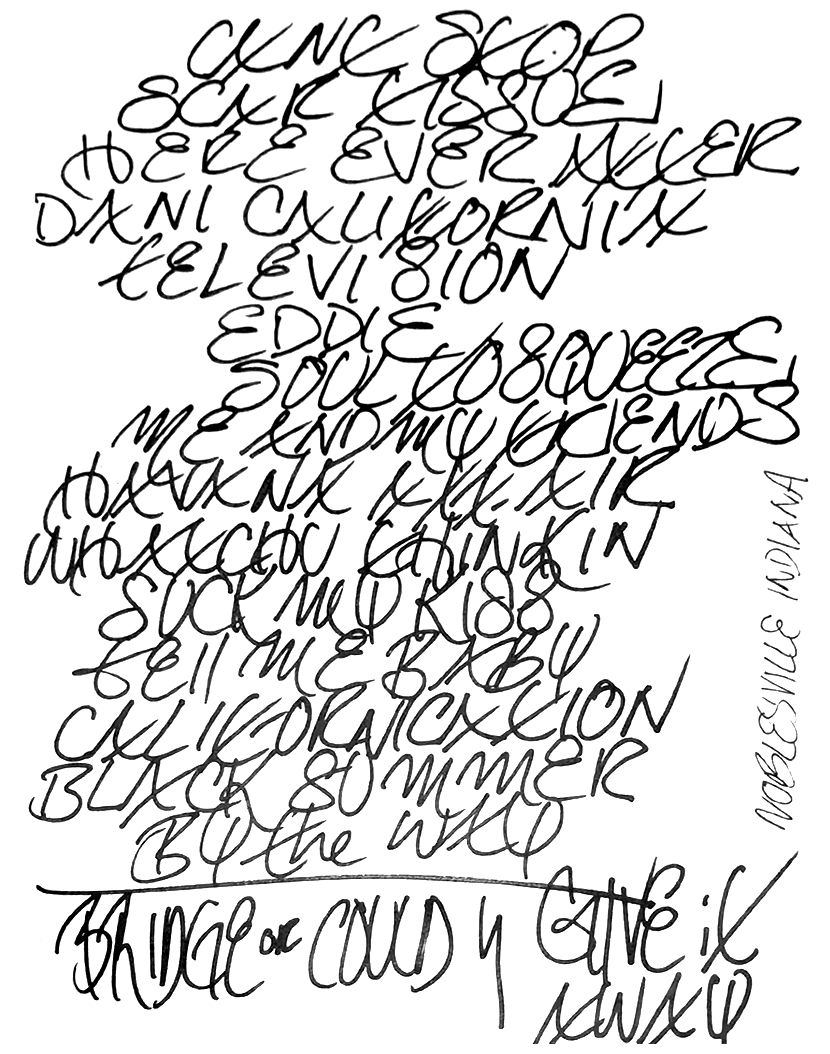 CANT STOP
SCAR TISSUE
HERE EVER AFTER
DANI CALIFORNIA
TELEVISION
EDDIE
SOUL TO SQUEEZE
ME AND MY FRIENDS
HAVANA AFFAIR
WHATCHU THINKIN
SUCK MY KISS
TEll ME BABY
CALIFORNICATION
BLACK SUMMER
BY the WAY
BRIDGE or COULD y GIVE iT
AWAY
NOBLESVILLE INDIANA